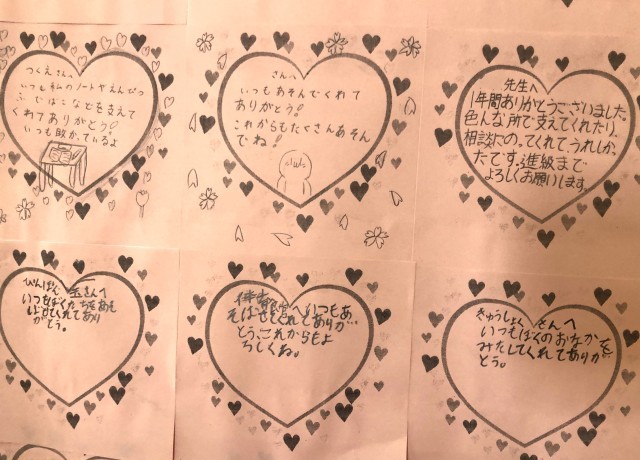 つくえさんへ
いつも私のノートやえんぴつ
ふでばこなどを支えて
くれてありがとう!
いつも助かっているよ
さんへ
いつもあそんでくれて
ありがとう!
これからもたくさんあそん
でね!
先生へ
1年間ありがとうございました。
色んな所で支えてくれたり、
相談にのってくれてうれしかっ
たです。進級まで
よろしくお願いします。
ぴんぽん玉さんへ
いつもぼくたちをあそ
ばせてくれてあり
がとう。
へいつもあ
そばせてくれてありが
とう、これからもよ
ろしくね。
きゅうしょくさんへ
いつもぼくのおなかを
みたしてくれてありが
とう。